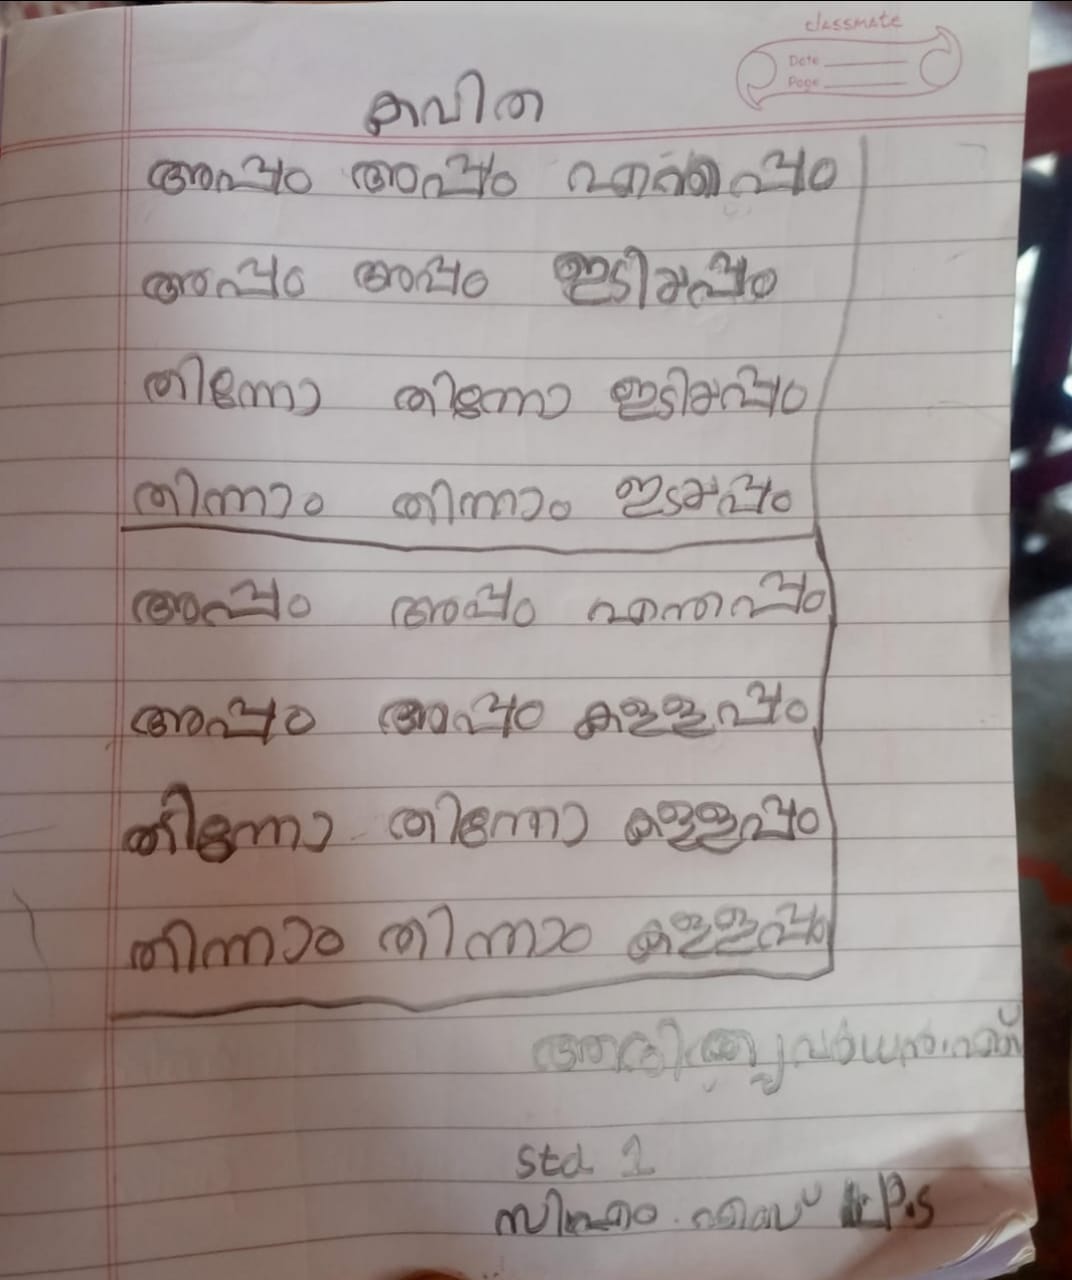 classmate
Date
Page
കവിത
അപ്പം അപ്പം എന്തപ്പം
അപ്പം അപ്പം ഇടിയപ്പം
തിന്നോ തിന്നോ ഇടിയപ്പം
തിന്നാം തിന്നാം ഇടയപ്പം
അപ്പം അപ്പം എന്തപ്പം
അപ്പം അപ്പം കള്ളപ്പം
തിന്നോ തിന്നോ കള്ളപ്പം
തിന്നാം തിന്നാം കള്ളപ്പം
std 1
L.P.S